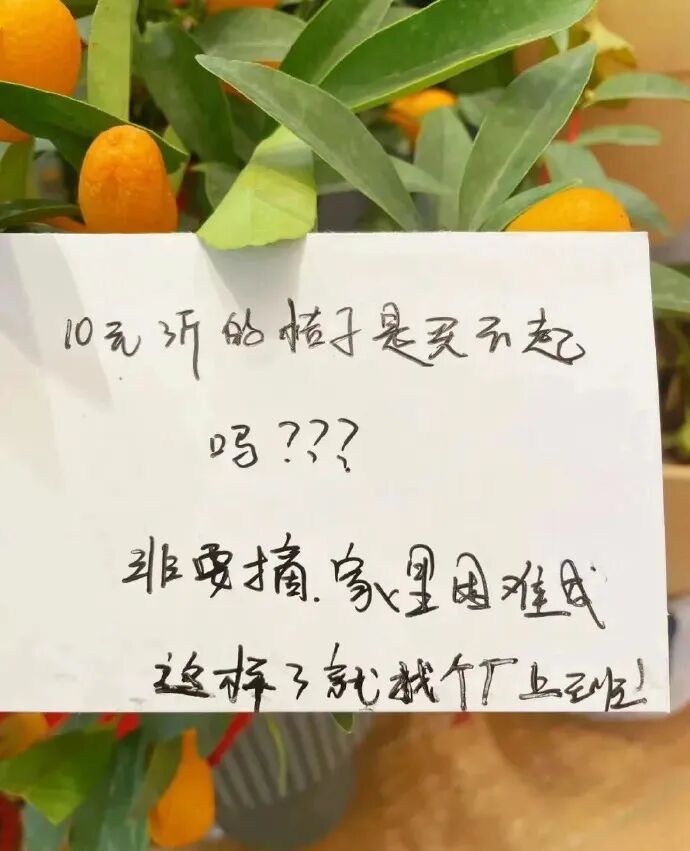 10元3斤的桔子是买不起
吗???
非要摘.家里困难成
这样了就找个厂上班!